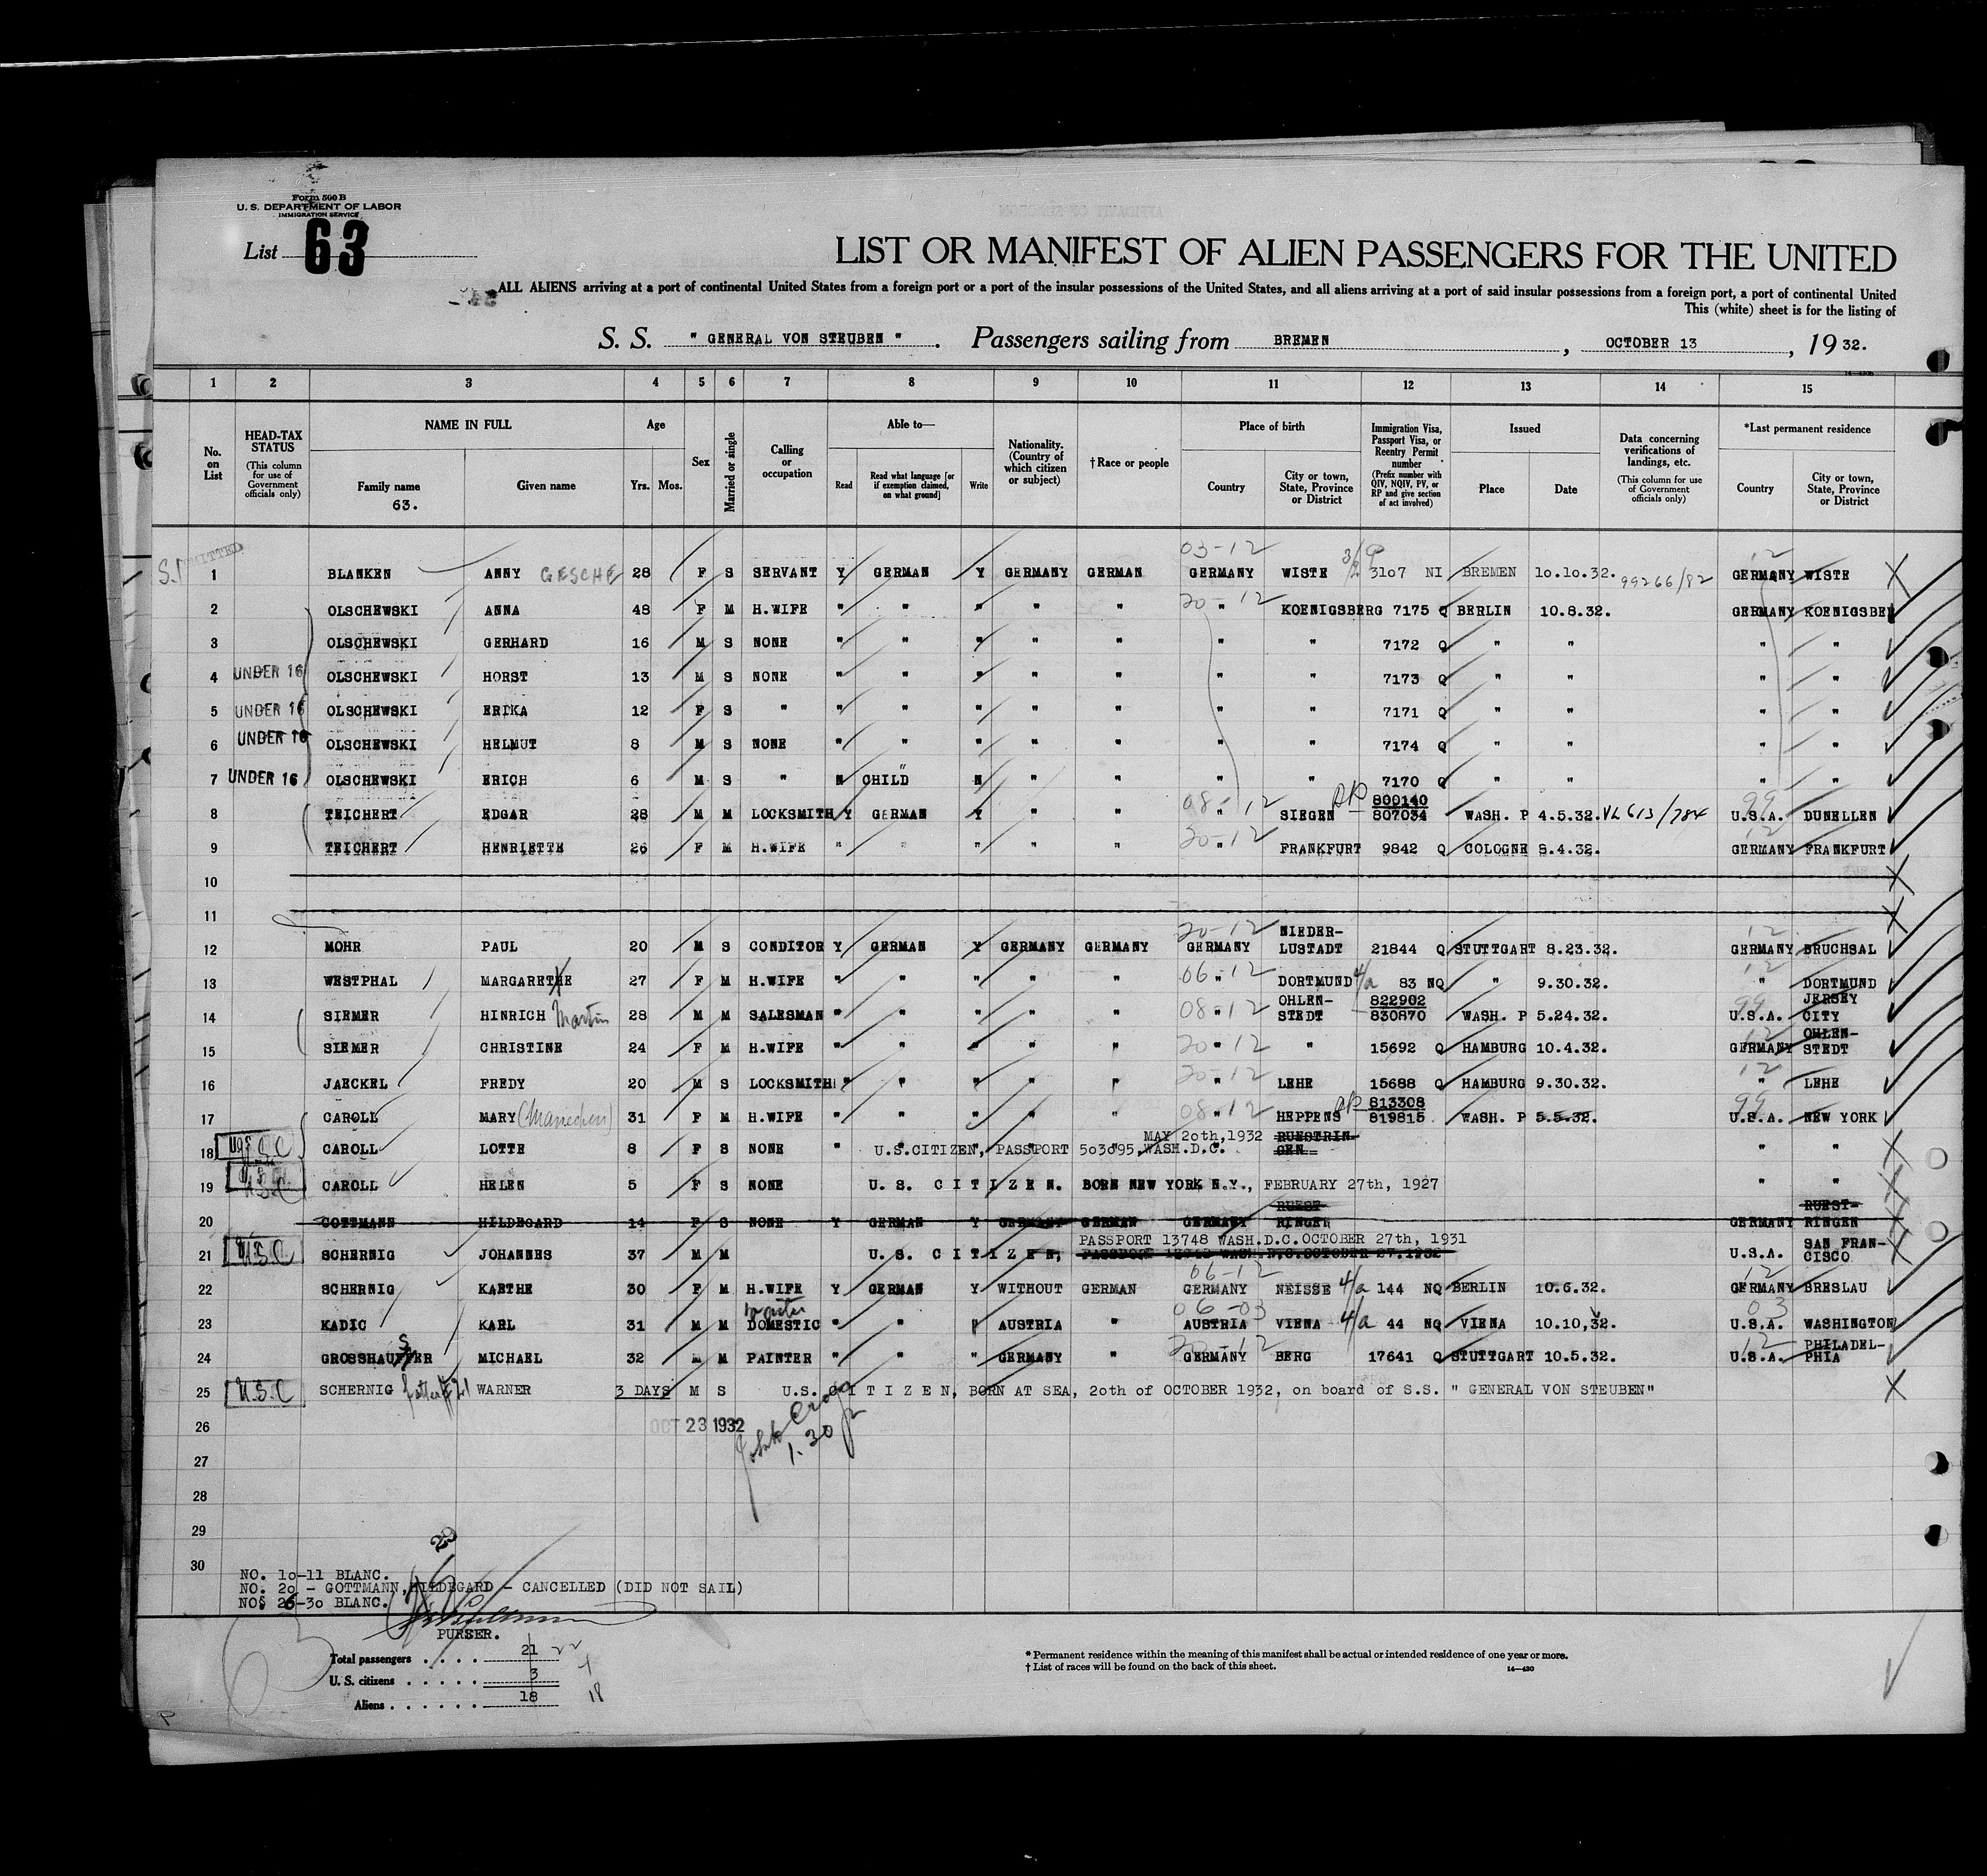 Form 500 B
U. S. DEPARTMENT OF LABOR
IMMIGRATION SERVICE
List 63
LIST OR MANIFEST OF ALIEN PASSENGERS FOR THE UNITED
ALL ALIENS arriving at a port of continental United States from a foreign port or a port of the insular possessions of the United States, and all aliens arriving at a port of said insular possessions from a foreign port, a port of continental United
This (white) sheet is for the listing of
S. S. " GENERAL VON STEUBEN " . Passengers sailing from BREMEN , OCTOBER 13 , 19 32.
1 2 3 4 5 6 7 8 9 10 11 12 13 14 15
No. on List
HEAD-TAX STATUS (This column for use of Government officials only)
NAME IN FULL
Family name
63.
Given name
Age
Yrs. Mos.
Sex
Married or single
Calling or occupation
Able to—
Read
Read what language [or if exemption claimed, on what ground]
Write
Nationality. (Country of which citizen or subject)
† Race or people
Place of birth
Country
City or town, State, Province or District
Immigration Visa, Passport Visa, or Reentry Permit number (Prefix number with QIV, NQIV, PV, or RP and give section of act involved)
Issued
Place
Date
Data concerning verifications of landings, etc. (This column for use of Government officials only)
*Last permanent residence
Country
City or town, State, Province or District
03-12 3/2 12
1 BLANKEN ANNY GESCHE 28 F S SERVANT Y GERMAN Y GERMANY GERMAN GERMANY WISTE 3107 NI BREMEN 10.10.32. 99266/82 GERMANY WISTE
20-12
2 OLSCHEWSKI ANNA 48 F M H.WIFE " " " " " " KOENIGSBERG 7175 Q BERLIN 10.8.32. GERMANY KOENIGSBER
3 OLSCHEWSKI GERHARD 16 M S NONE " " " " " " " 7172 Q " " " "
4 UNDER 16 OLSCHEWSKI HORST 13 M S NONE " " " " " " " 7173 Q " " " "
5 UNDER 16 OLSCHEWSKI ERIKA 12 F S " " " " " " " " 7171 Q " " " "
6 UNDER 16 OLSCHEWSKI HELMUT 8 M S NONE " " " " " " " 7174 Q " " " "
7 UNDER 16 OLSCHEWSKI ERICH 6 M S " N CHILD N " " " " 7170 Q " " " "
08-12 800140 99
8 TEICHERT EDGAR 28 M M LOCKSMITH Y GERMAN Y " " " SIEGEN 807034 WASH. P 4.5.32. VL 613/784 U.S.A. DUNELLEN
30-12 12
9 TEICHERT HENRIETTE 26 F M H.WIFE " " " " " " FRANKFURT 9842 Q COLOGNE 8.4.32. GERMANY FRANKFURT
10
11
20-12 NIEDER- 12
12 MOHR PAUL 20 M S CONDITOR Y GERMAN Y GERMANY GERMANY GERMANY LUSTADT 21844 Q STUTTGART 8.23.32. GERMANY BRUCHSAL
13 WESTPHAL MARGARETHE 27 F M H.WIFE " " " " " 06-12 " DORTMUND 4/a 83 NQ " 9.30.32. " DORTMUND
OHLEN- 822902 JERSEY
14 SIEMER HINRICH Martin 28 M M SALESMAN " " " " " 08-12 " STEDT 830870 WASH. P 5.24.32. U.S.A. CITY
OHLEN-
15 SIEMER CHRISTINE 24 F M H.WIFE " " " " " 20-12 " " 15692 Q HAMBURG 10.4.32. GERMANY STEDT
16 JAECKEL FREDY 20 M S LOCKSMITH " " " " " 20-12 " LEHE 15688 Q HAMBURG 9.30.32. " LEHE
813308 99
17 CAROLL MARY 31 F M H.WIFE " " " " " 08-12 " HEPPENS 819815 WASH. P 5.5.32. U.S.A. NEW YORK
MAY 20th,1932 RUESTRIN-
18 U.S.C CAROLL LOTTE 8 F S NONE " U.S.CITIZEN, PASSPORT 503095,WASH.D.C. GEN " "
19 CAROLL HELEN 5 F S NONE U. S. C I T I Z E N. BORN NEW YORK N.Y., FEBRUARY 27th, 1927 " "
RUEST- RUEST-
20 GOTTMANN HILDEGARD 14 F S NONE Y GERMAN Y GERMANY GERMAN GERMANY RINGEN GERMANY RINGEN
PASSPORT 13748 WASH.D.C.OCTOBER 27th, 1931 SAN FRAN-
21 U.S.C SCHERNIG JOHANNES 37 M M U. S. C I T I Z E N, PASSPORT 13748 WASH.D.C.OCTOBER 27.1932 U.S.A. CISCO
06-12 12
22 SCHERNIG KAETHE 30 F M H.WIFE Y GERMAN Y WITHOUT GERMAN GERMANY NEISSE 4/a 144 NQ BERLIN 10.6.32. GERMANY BRESLAU
waiter 06-03 03
23 KADIC KARL 31 M M DOMESTIC " " " AUSTRIA " AUSTRIA VIENA 4/a 44 NQ VIENA 10.10,32. U.S.A. WASHINGTON
S 20-12 12 PHILADEL-
24 GROSSHAUSER MICHAEL 32 M M PAINTER " " " GERMANY " GERMANY BERG 17641 Q STUTTGART 10.5.32. U.S.A. PHIA
25 U.S.C SCHERNIG father # 21 WARNER 3 DAYS M S U.S. C I T I Z E N, BORN AT SEA, 20th of OCTOBER 1932, on board of S.S. " GENERAL VON STEUBEN"
26 OCT 23 1932
1.30 p
27
28
29
30
NO. 10-11 BLANC.
NO. 20 - GOTTMANN, HILDEGARD - CANCELLED (DID NOT SAIL)
NOS 26-30 BLANC.
PURSER.
63
Total passengers . . . . 21 22
U. S. citizens . . . . . . 3 4
Aliens . . . . . . 18 18
* Permanent residence within the meaning of this manifest shall be actual or intended residence of one year or more.
† List of races will be found on the back of this sheet. 14—430